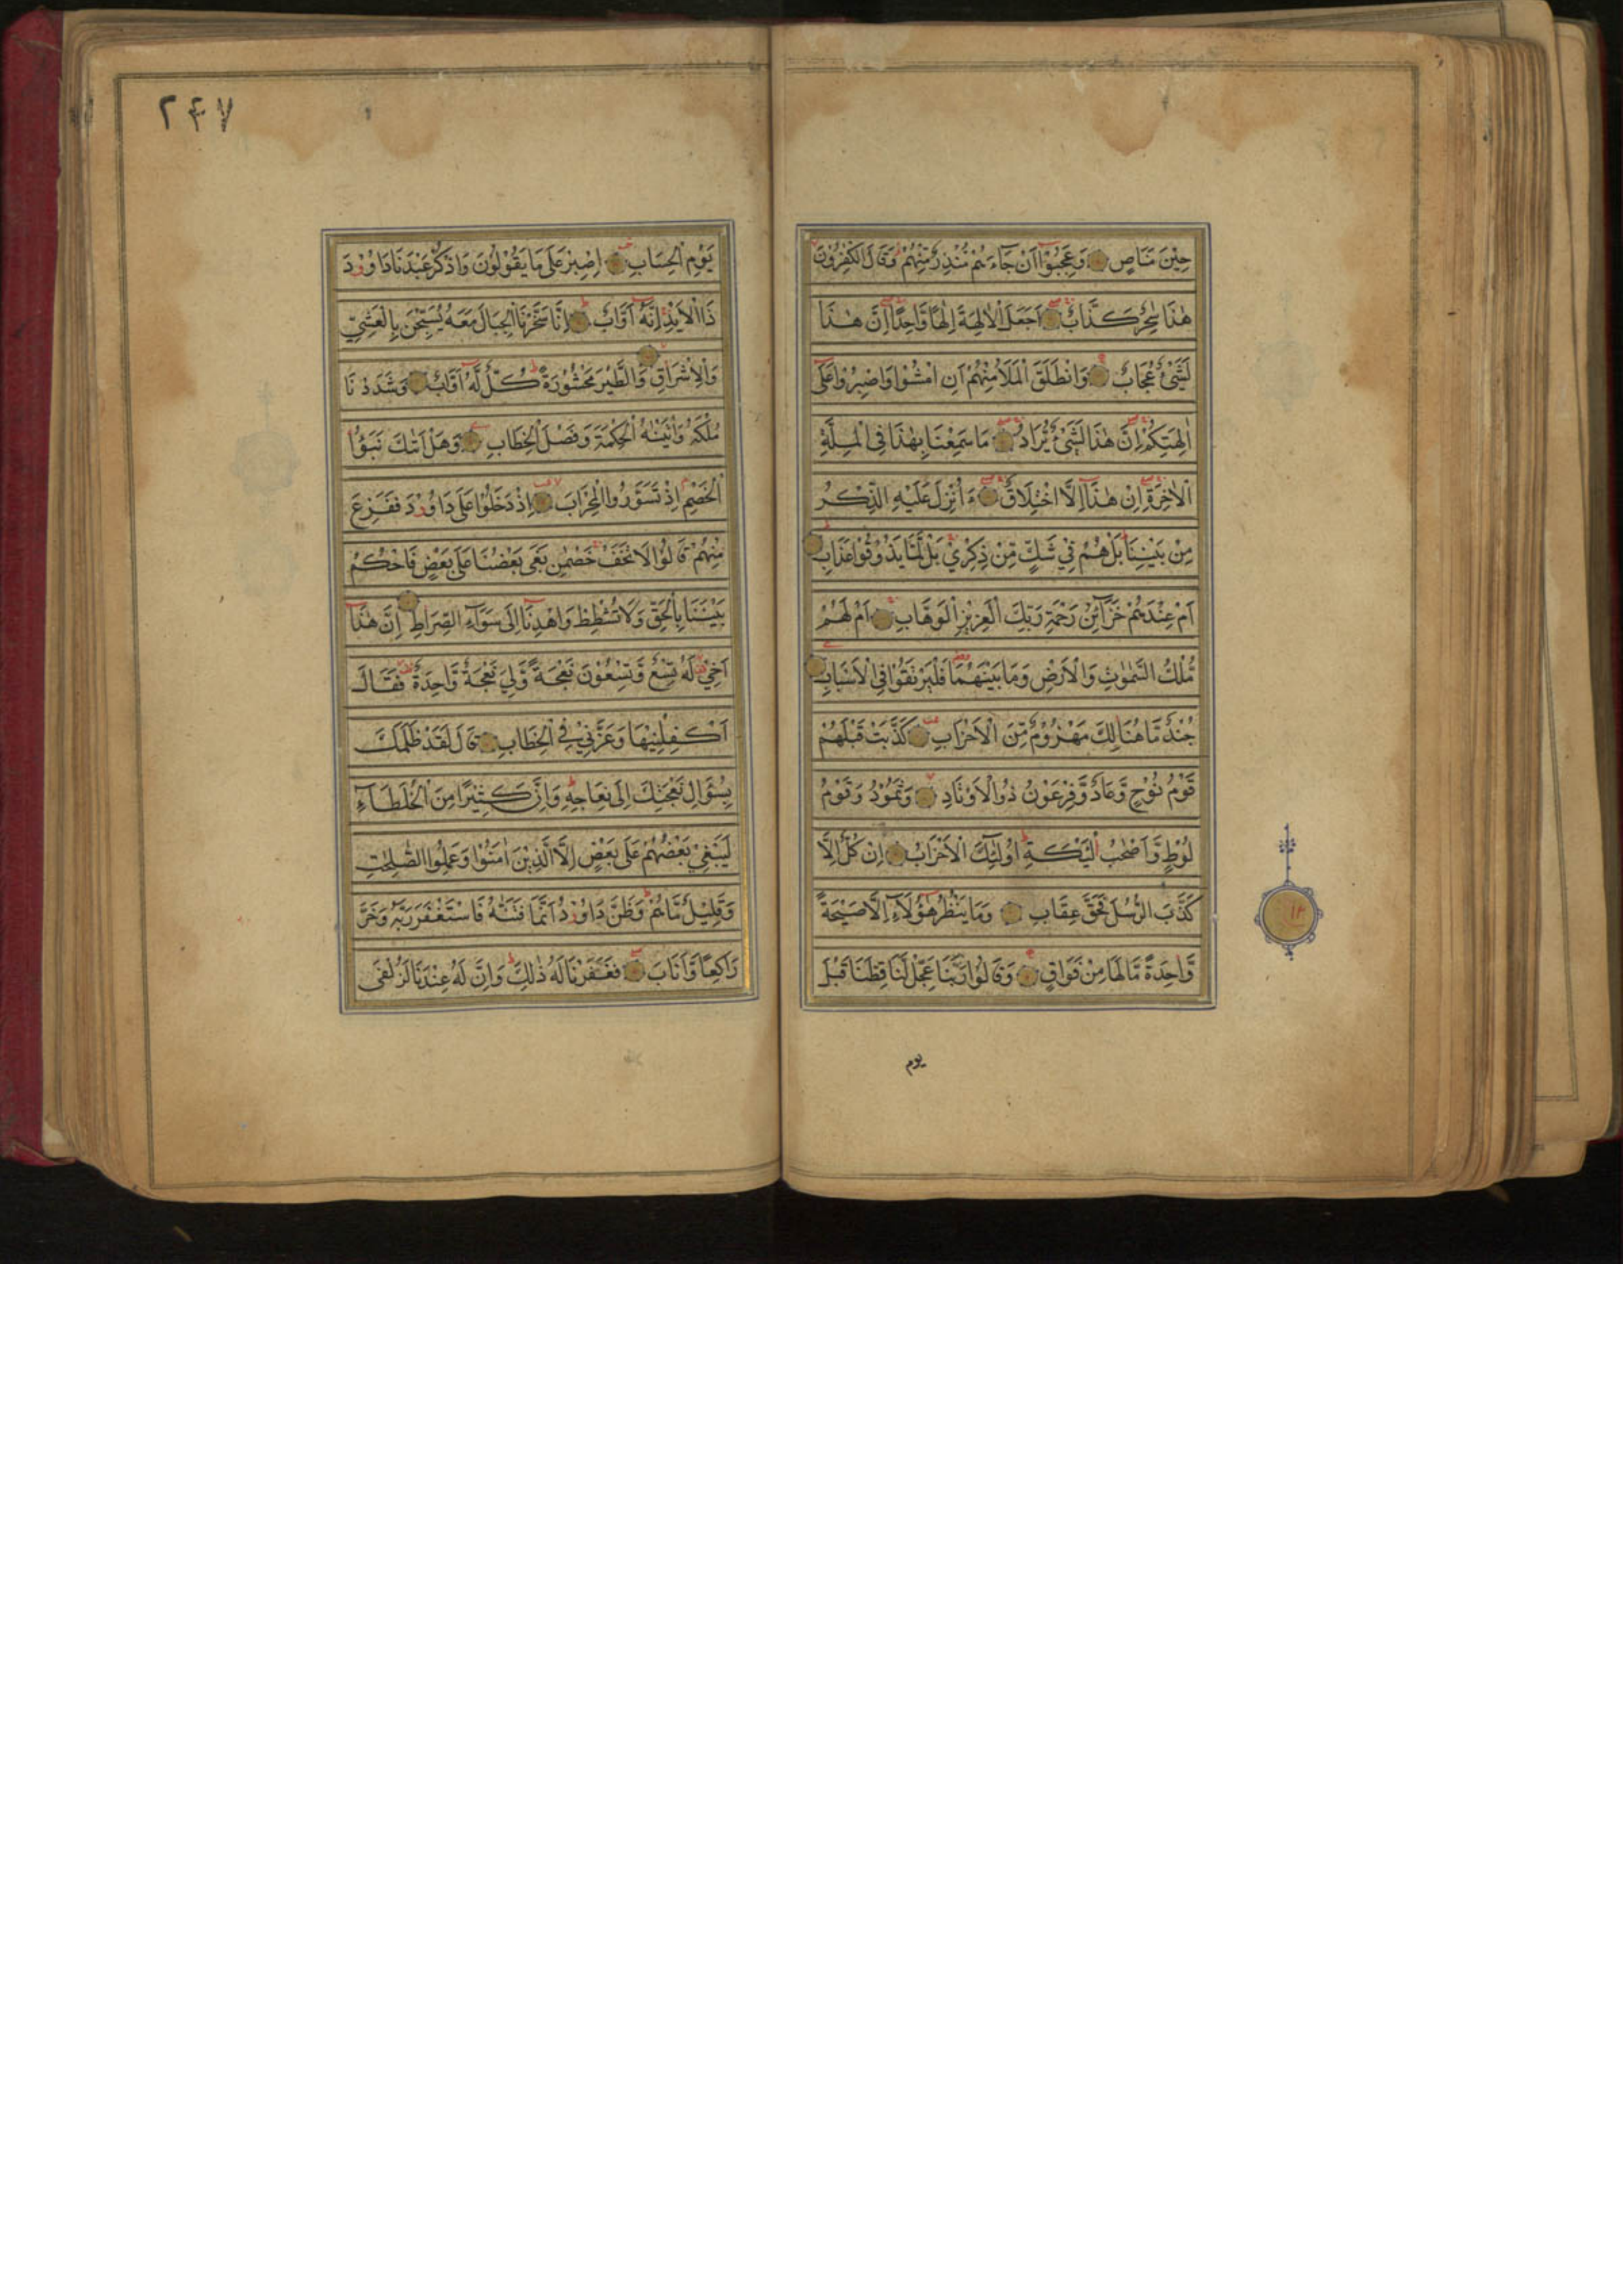 حِيْنَ مَنَاصٍ وَعَجِبُوْٓا اَنْ جَآءَهُمْ مُّنْذِرٌ مِّنْهُمْ وَقَالَ الْكٰفِرُوْنَ
هٰذَا سٰحِرٌ كَذَّابٌ اَجَعَلَ الْاٰلِهَةَ اِلٰهًا وَّاحِدًا اِنَّ هٰذَا
لَشَيْءٌ عُجَابٌ وَانْطَلَقَ الْمَلَاُ مِنْهُمْ اَنِ امْشُوْا وَاصْبِرُوْا عَلٰٓى
اٰلِهَتِكُمْ اِنَّ هٰذَا لَشَيْءٌ يُّرَادُ مَا سَمِعْنَا بِهٰذَا فِى الْمِلَّةِ
الْاٰخِرَةِ اِنْ هٰذَآ اِلَّا اخْتِلَاقٌ ءَاُنْزِلَ عَلَيْهِ الذِّكْرُ
مِنْ بَيْنِنَا بَلْ هُمْ فِيْ شَكٍّ مِّنْ ذِكْرِيْ بَلْ لَّمَّا يَذُوْقُوْا عَذَابِ
اَمْ عِنْدَهُمْ خَزَآئِنُ رَحْمَةِ رَبِّكَ الْعَزِيْزِ الْوَهَّابِ اَمْ لَهُمْ
مُّلْكُ السَّمٰوٰتِ وَالْاَرْضِ وَمَا بَيْنَهُمَا فَلْيَرْتَقُوْا فِى الْاَسْبَابِ
جُنْدٌ مَّا هُنَالِكَ مَهْزُوْمٌ مِّنَ الْاَحْزَابِ كَذَّبَتْ قَبْلَهُمْ
قَوْمُ نُوْحٍ وَّعَادٌ وَّفِرْعَوْنُ ذُو الْاَوْتَادِ وَثَمُوْدُ وَقَوْمُ
لُوْطٍ وَّاَصْحٰبُ لْـَٔيْكَةِ اُولٰٓئِكَ الْاَحْزَابُ اِنْ كُلٌّ اِلَّا
كَذَّبَ الرُّسُلَ فَحَقَّ عِقَابِ وَمَا يَنْظُرُ هٰٓؤُلَآءِ اِلَّا صَيْحَةً
وَّاحِدَةً مَّا لَهَا مِنْ فَوَاقٍ وَقَالُوْا رَبَّنَا عَجِّلْ لَّنَا قِطَّنَا قَبْلَ
يوم
١٢
٢٤٧
يَوْمِ الْحِسَابِ اِصْبِرْ عَلٰى مَا يَقُوْلُوْنَ وَاذْكُرْ عَبْدَنَا دَاوٗدَ
ذَا الْاَيْدِ اِنَّهٗٓ اَوَّابٌ اِنَّا سَخَّرْنَا الْجِبَالَ مَعَهٗ يُسَبِّحْنَ بِالْعَشِيِّ
وَالْاِشْرَاقِ وَالطَّيْرَ مَحْشُوْرَةً كُلٌّ لَّهٗٓ اَوَّابٌ وَشَدَدْنَا
مُلْكَهٗ وَاٰتَيْنٰهُ الْحِكْمَةَ وَفَصْلَ الْخِطَابِ وَهَلْ اَتٰىكَ نَبَؤُا
الْخَصْمِ اِذْ تَسَوَّرُوا الْمِحْرَابَ اِذْ دَخَلُوْا عَلٰى دَاوٗدَ فَفَزِعَ
مِنْهُمْ قَالُوْا لَا تَخَفْ خَصْمٰنِ بَغٰى بَعْضُنَا عَلٰى بَعْضٍ فَاحْكُمْ
بَيْنَنَا بِالْحَقِّ وَلَا تُشْطِطْ وَاهْدِنَآ اِلٰى سَوَآءِ الصِّرَاطِ اِنَّ هٰذَآ
اَخِيْ لَهٗ تِسْعٌ وَّتِسْعُوْنَ نَعْجَةً وَّلِيَ نَعْجَةٌ وَّاحِدَةٌ فَقَالَ
اَكْفِلْنِيْهَا وَعَزَّنِيْ فِى الْخِطَابِ قَالَ لَقَدْ ظَلَمَكَ
بِسُؤَالِ نَعْجَتِكَ اِلٰى نِعَاجِهٖ وَاِنَّ كَثِيْرًا مِنَ الْخُلَطَآءِ
لَيَبْغِيْ بَعْضُهُمْ عَلٰى بَعْضٍ اِلَّا الَّذِيْنَ اٰمَنُوْا وَعَمِلُوا الصّٰلِحٰتِ
وَقَلِيْلٌ مَّا هُمْ وَظَنَّ دَاوٗدُ اَنَّمَا فَتَنّٰهُ فَاسْتَغْفَرَ رَبَّهٗ وَخَرَّ
رَاكِعًا وَّاَنَابَ فَغَفَرْنَا لَهٗ ذٰلِكَ وَاِنَّ لَهٗ عِنْدَنَا لَزُلْفٰى